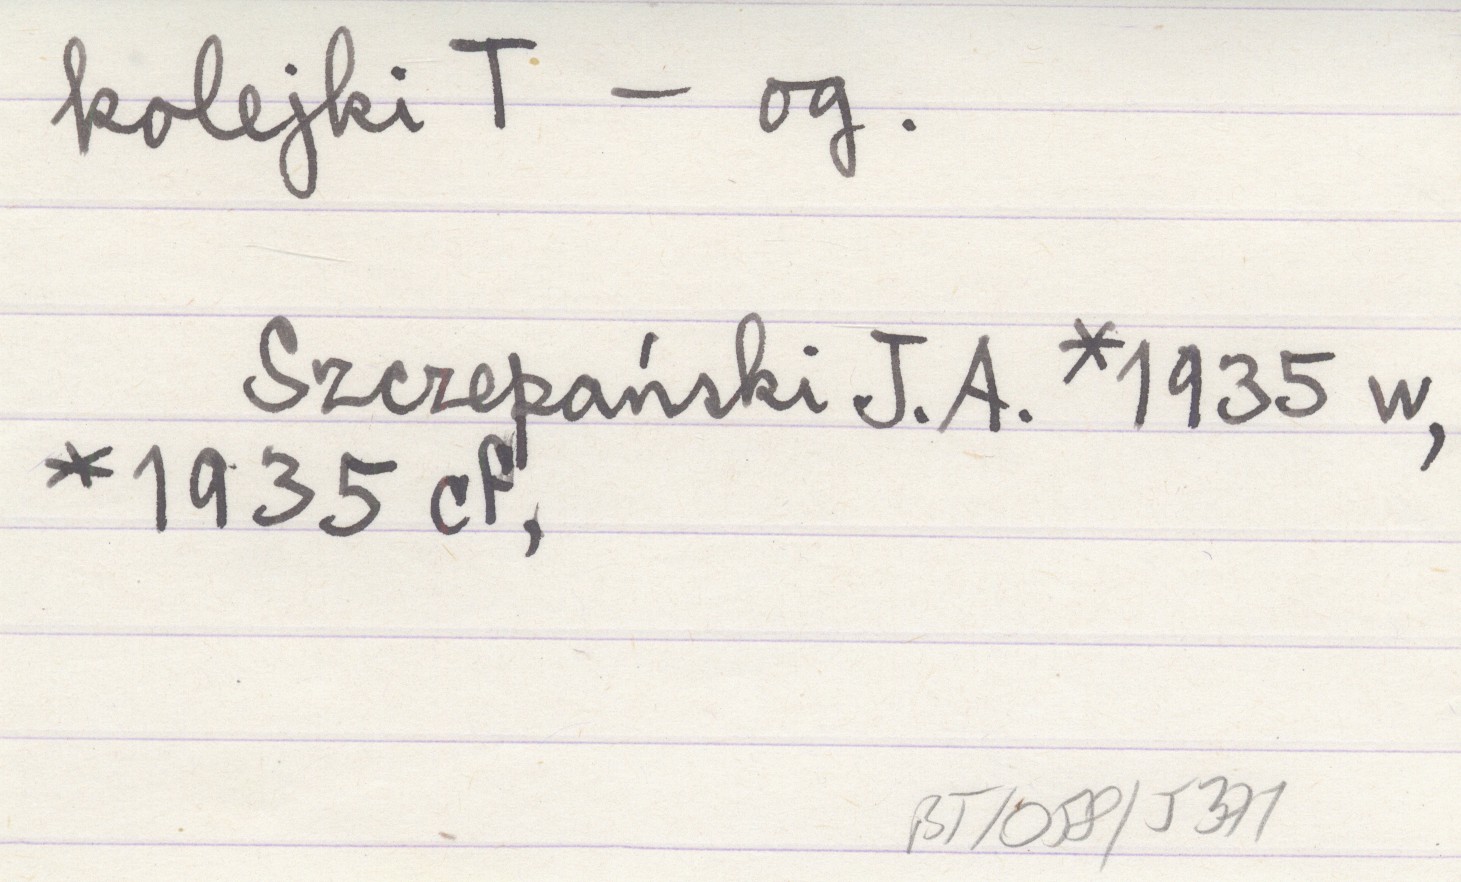 kolejki T – og.
Szczepański J.A. *1935 w,
*1935 cf,
BT/058/J371